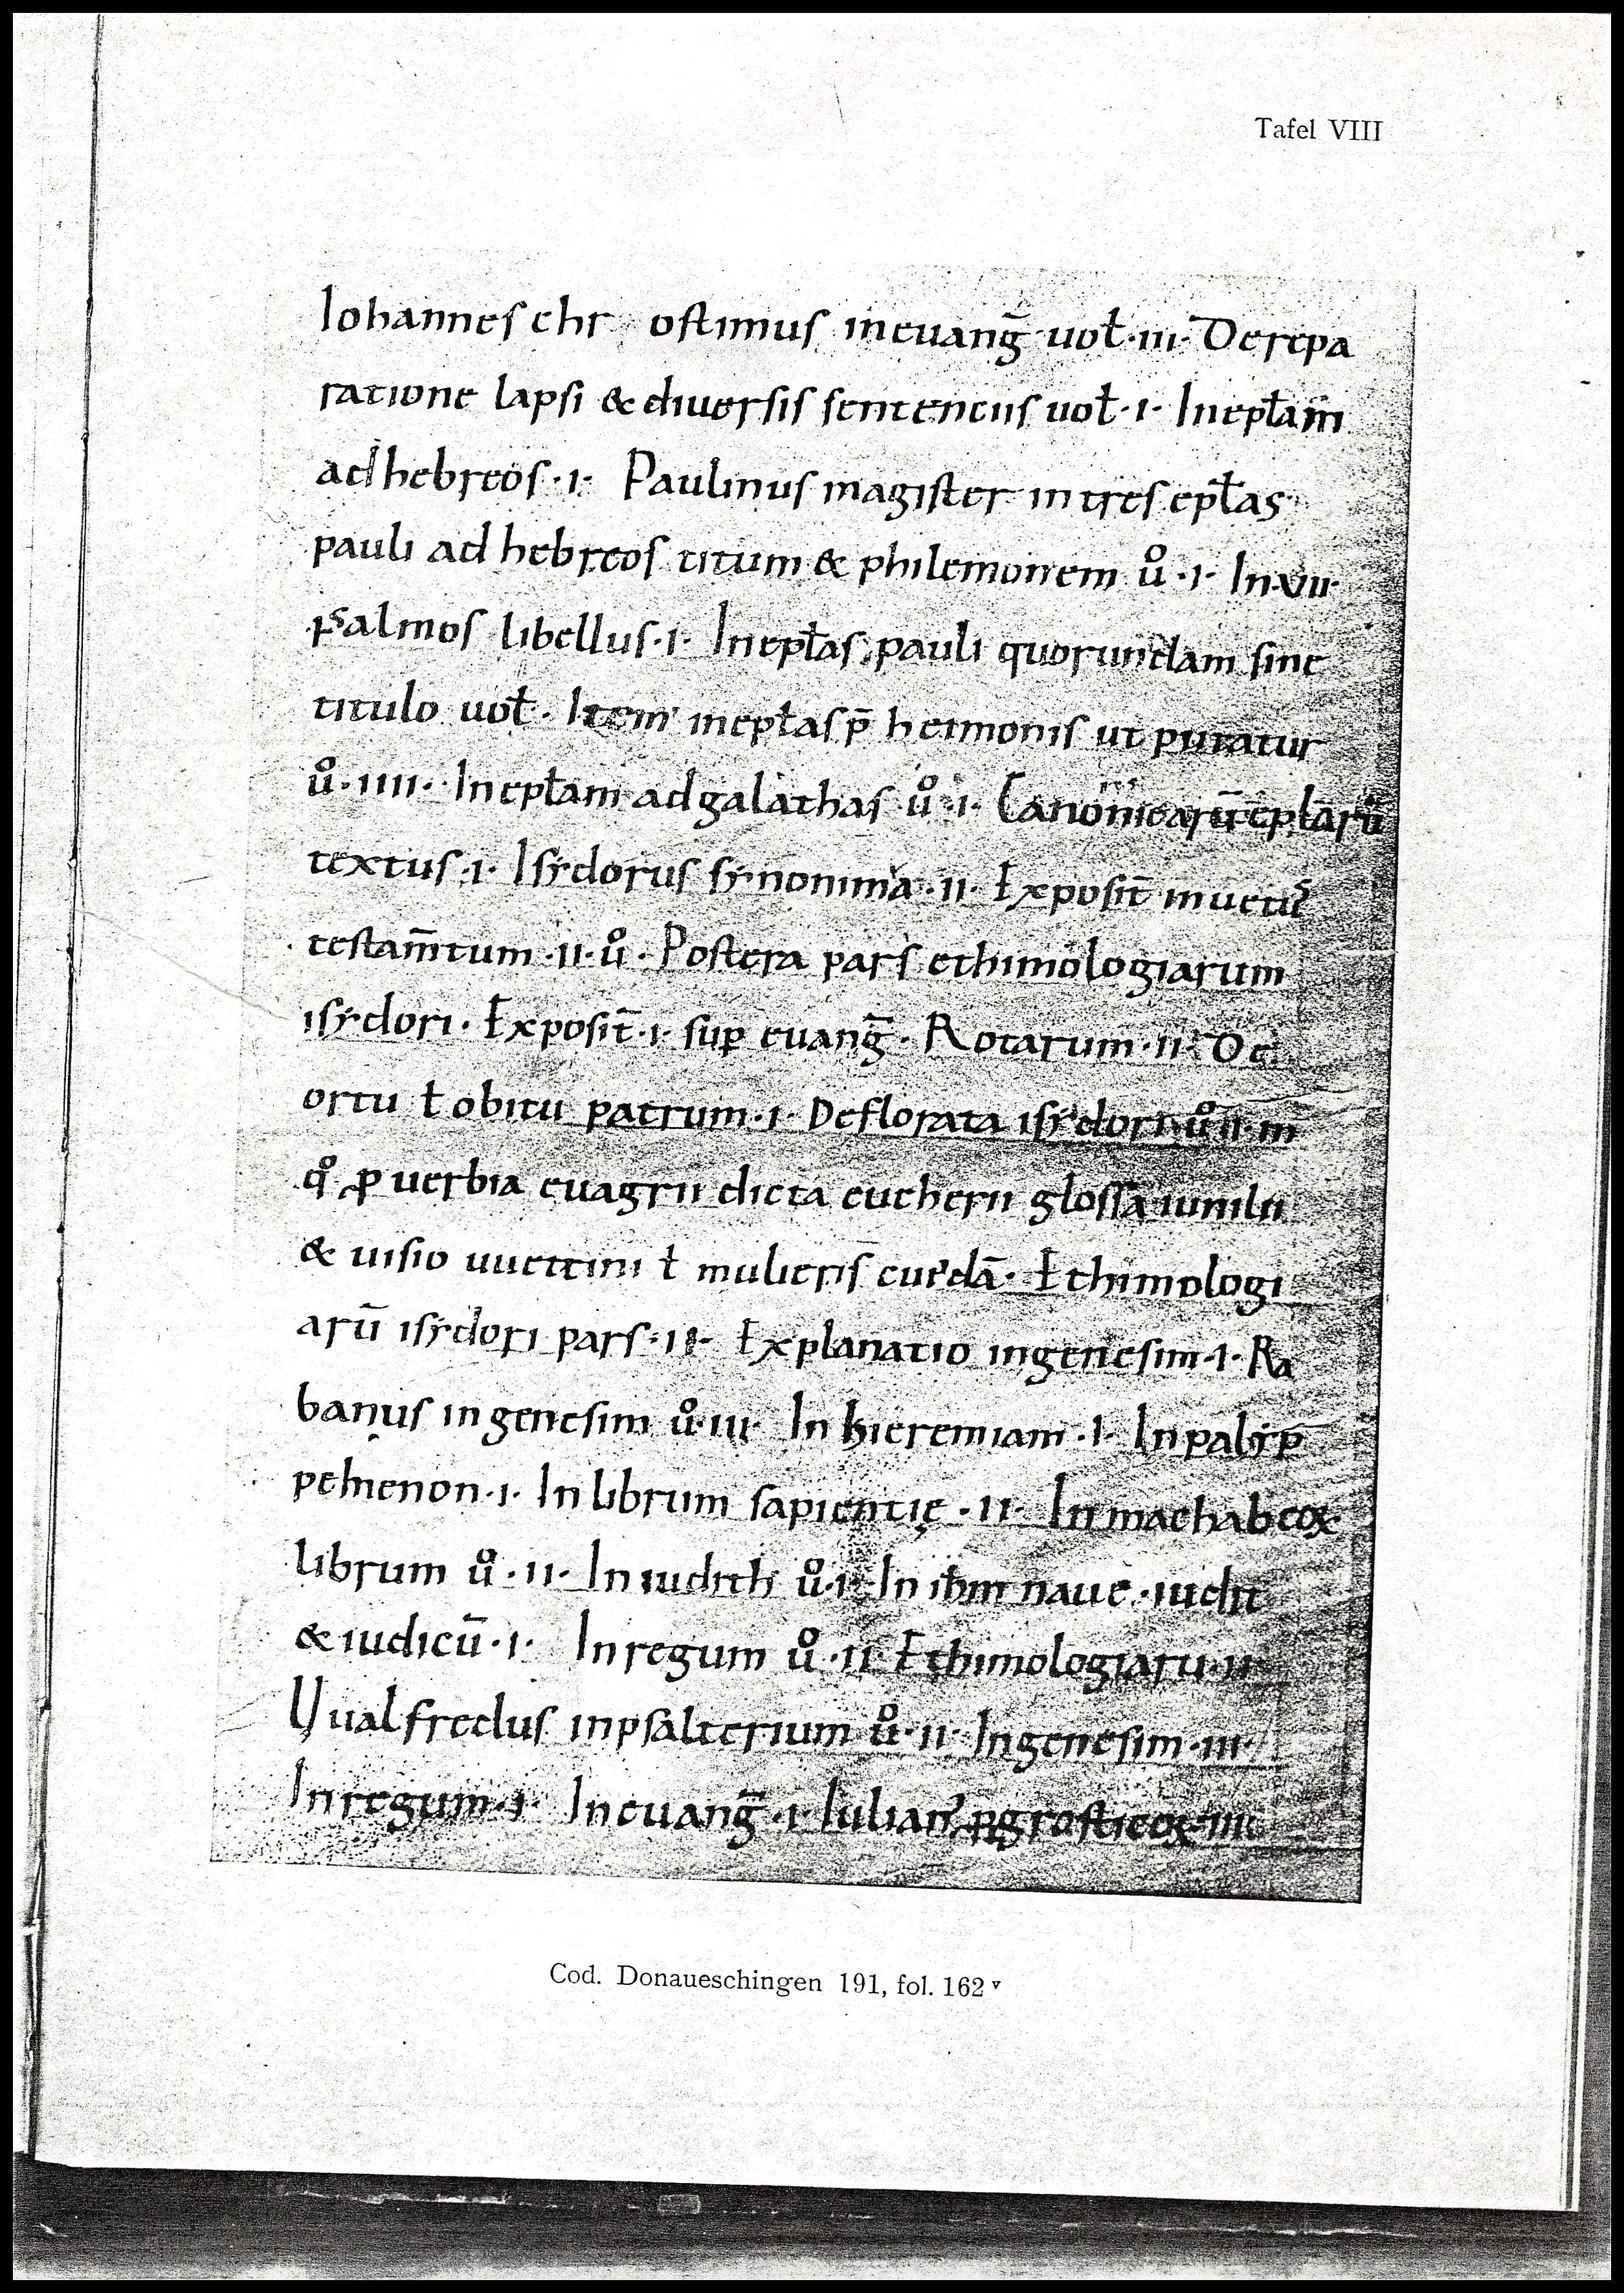 Tafel VIII
Iohannes chr ostimus in euang̅ uoł·iii· De repa
ratione lapsi & diuersis sentenciis uoł·i· In epłam
ad hebreos·i· Paulinus magister in tres epłas
pauli ad hebreos titum & philemonem uͦ·i· In·viii·
psalmos libellus·i· In epłas pauli quorundam sine
titulo uoł· Item in epłas p̄ heimonis ut putatur
uͦ·iiii· In epłam ad galathas uͦ·i· Canonicarū epłarū
textus·i· Isydorus synonima·ii· Exposit̄ in uetus
testam̄tum·ii·uͦ· Postera pars ethimologiarum
isydori· Exposit̄·i· suꝑ euang̅· Rotarum·ii· De
ortu ł obitu patrum·i· Deflorata isydori uͦ ii·in
qͦ ꝓuerbia euagrii dicta eucherii glossa iunilii
& uisio uuettini ł mulieris cuꝰdā· Ethimologi
arū isydori pars·ii· Explanatio in genesim·i· Ra
banus in genesim uͦ·iii· In hieremiam·i· In palyp̄
pemenon·i· In librum sapientię·ii· In machabeoꝝ
librum uͦ·ii· In iudith uͦ·i· In ihm naue·iudit
& iudicū·i· In regum uͦ·ii· Ethimologiaru·ii·
Uualfredus in psalterium uͦ·ii· In genesim·iii·
In regum·i· In euang̅·i· Iulianꝰ ꝓgrosticoꝝ·iii·
Cod. Donaueschingen 191, fol. 162ᵛ